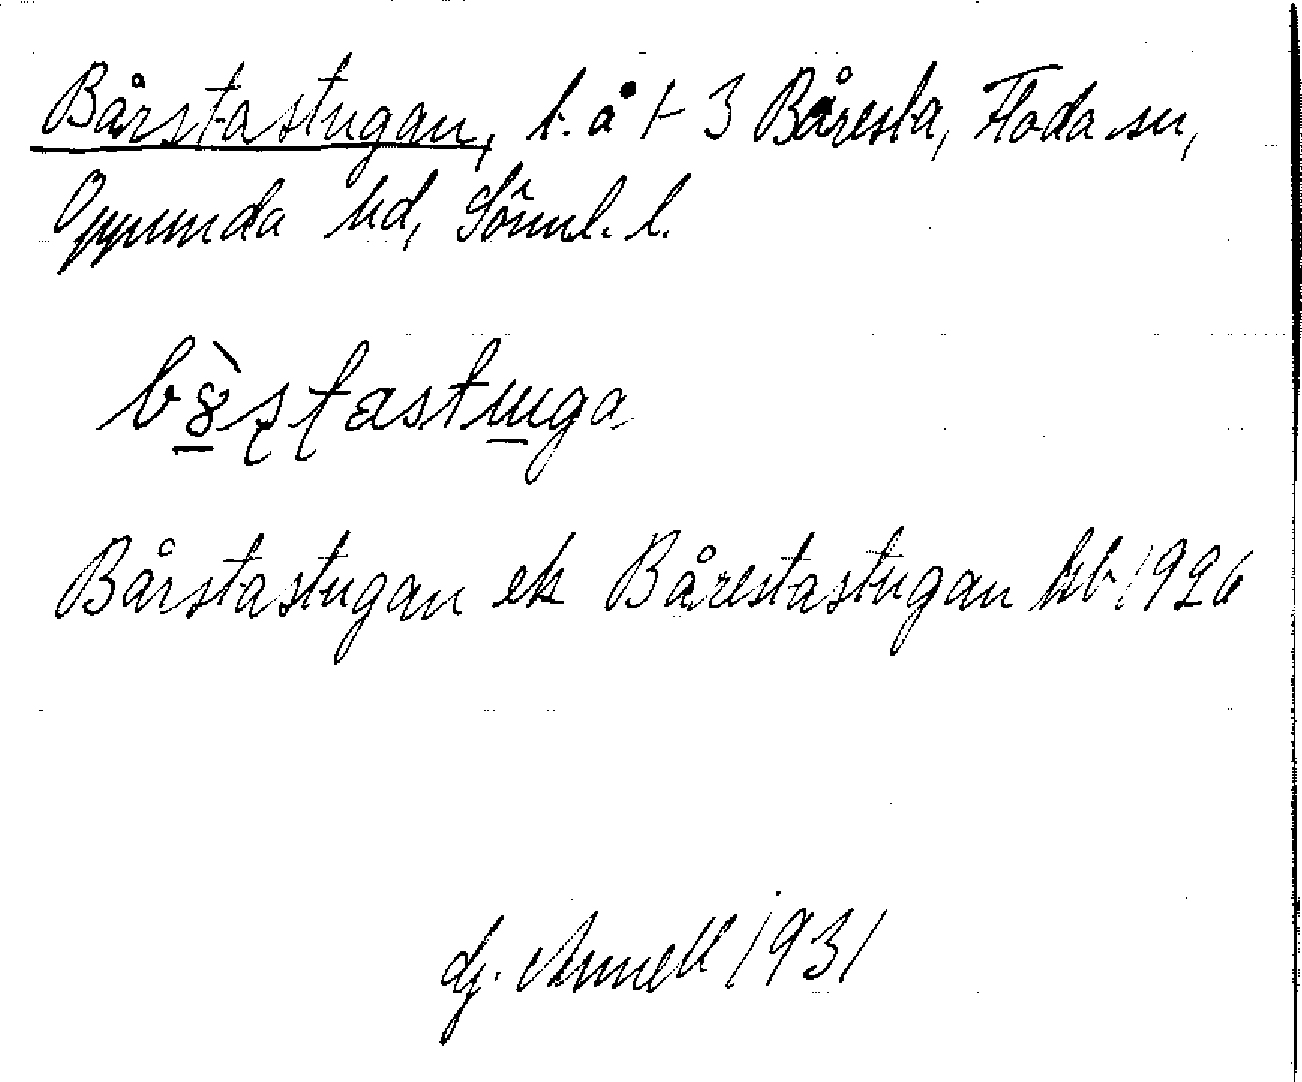 Bårstastugan, t. å 1-3 Båresta, Floda sn,
Oppunda hd, Söml. l.
Bårstastugan ek Bårestastugan kb 1926
Arnell 1931